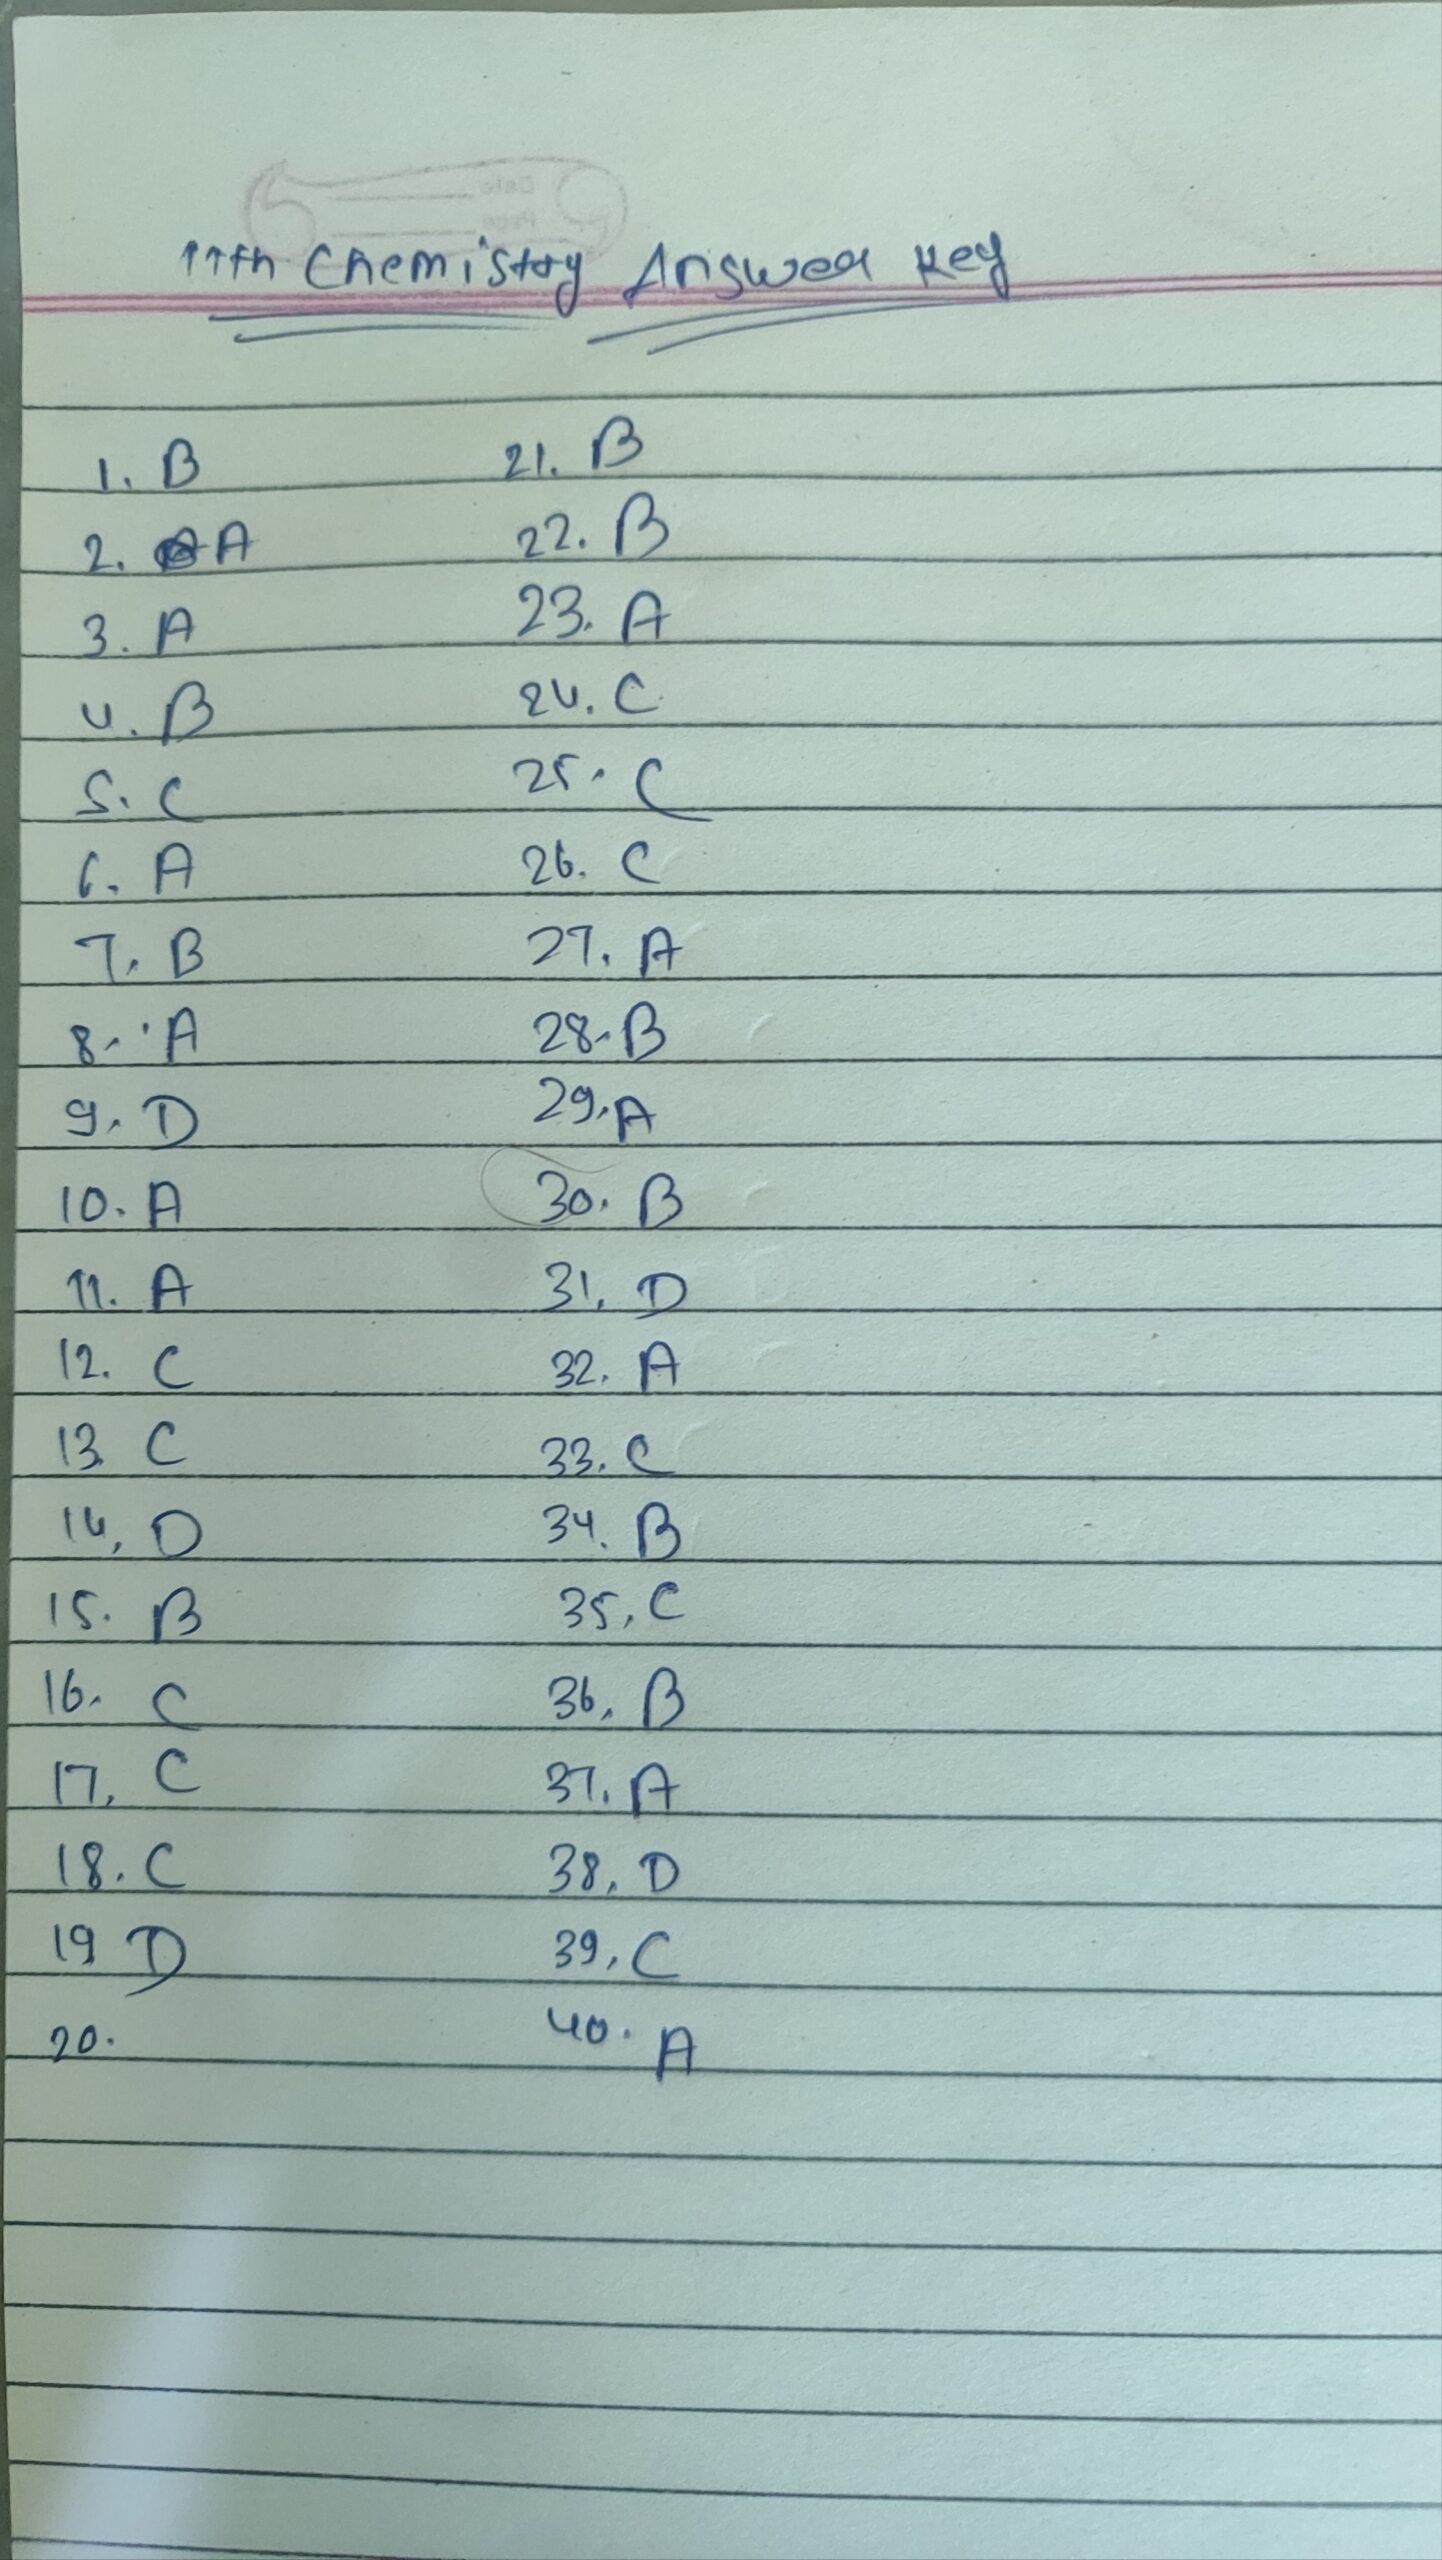 11th Chemistry Answer Key
1. B
2. A
3. A
4. B
5. C
6. A
7. B
8. A
9. D
10. A
11. A
12. C
13. C
14. D
15. B
16. C
17. C
18. C
19 D
20.
21. B
22. B
23. A
24. C
25. C
26. C
27. A
28. B
29. A
30. B
31. D
32. A
33. C
34. B
35. C
36. B
37. A
38. D
39. C
40. A